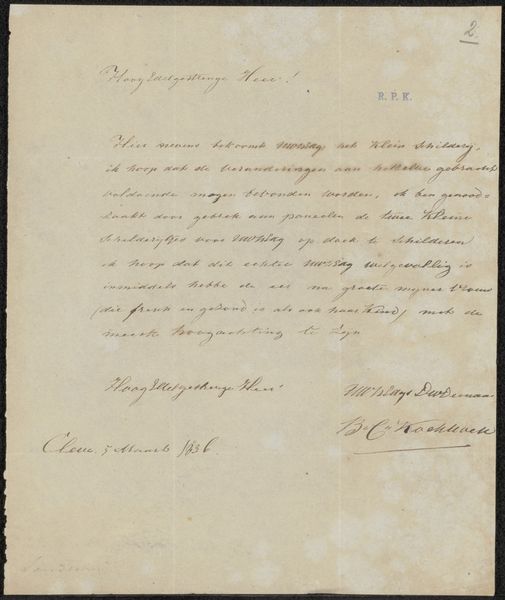 2.
Hoog Edelgestrenge Heer!
R. P. K.
Hier nevens bekomt UWEdag het Klein Schilderij,
ik hoop dat de veranderingen aan hetzelve gebracht
voldoende mogen bevonden worden, ik ben genood-
zaakt door gebrek aan paneelen de twee Kleine
Schilderijtjes voor UWEdag op doek te Schilderen
ik hoop dat dit echter UWEdag welgevallig is
inmiddels hebbe de eer na groete mijner Vrouw
(die frisch en gezond is als ook haar Kind) met de
meeste hoogachting te zijn
Hoog Edelgestrenge Heer!
UWEdags Dw Dienaar
B. C. Koekkoek
Cleve 5 Maart 1836